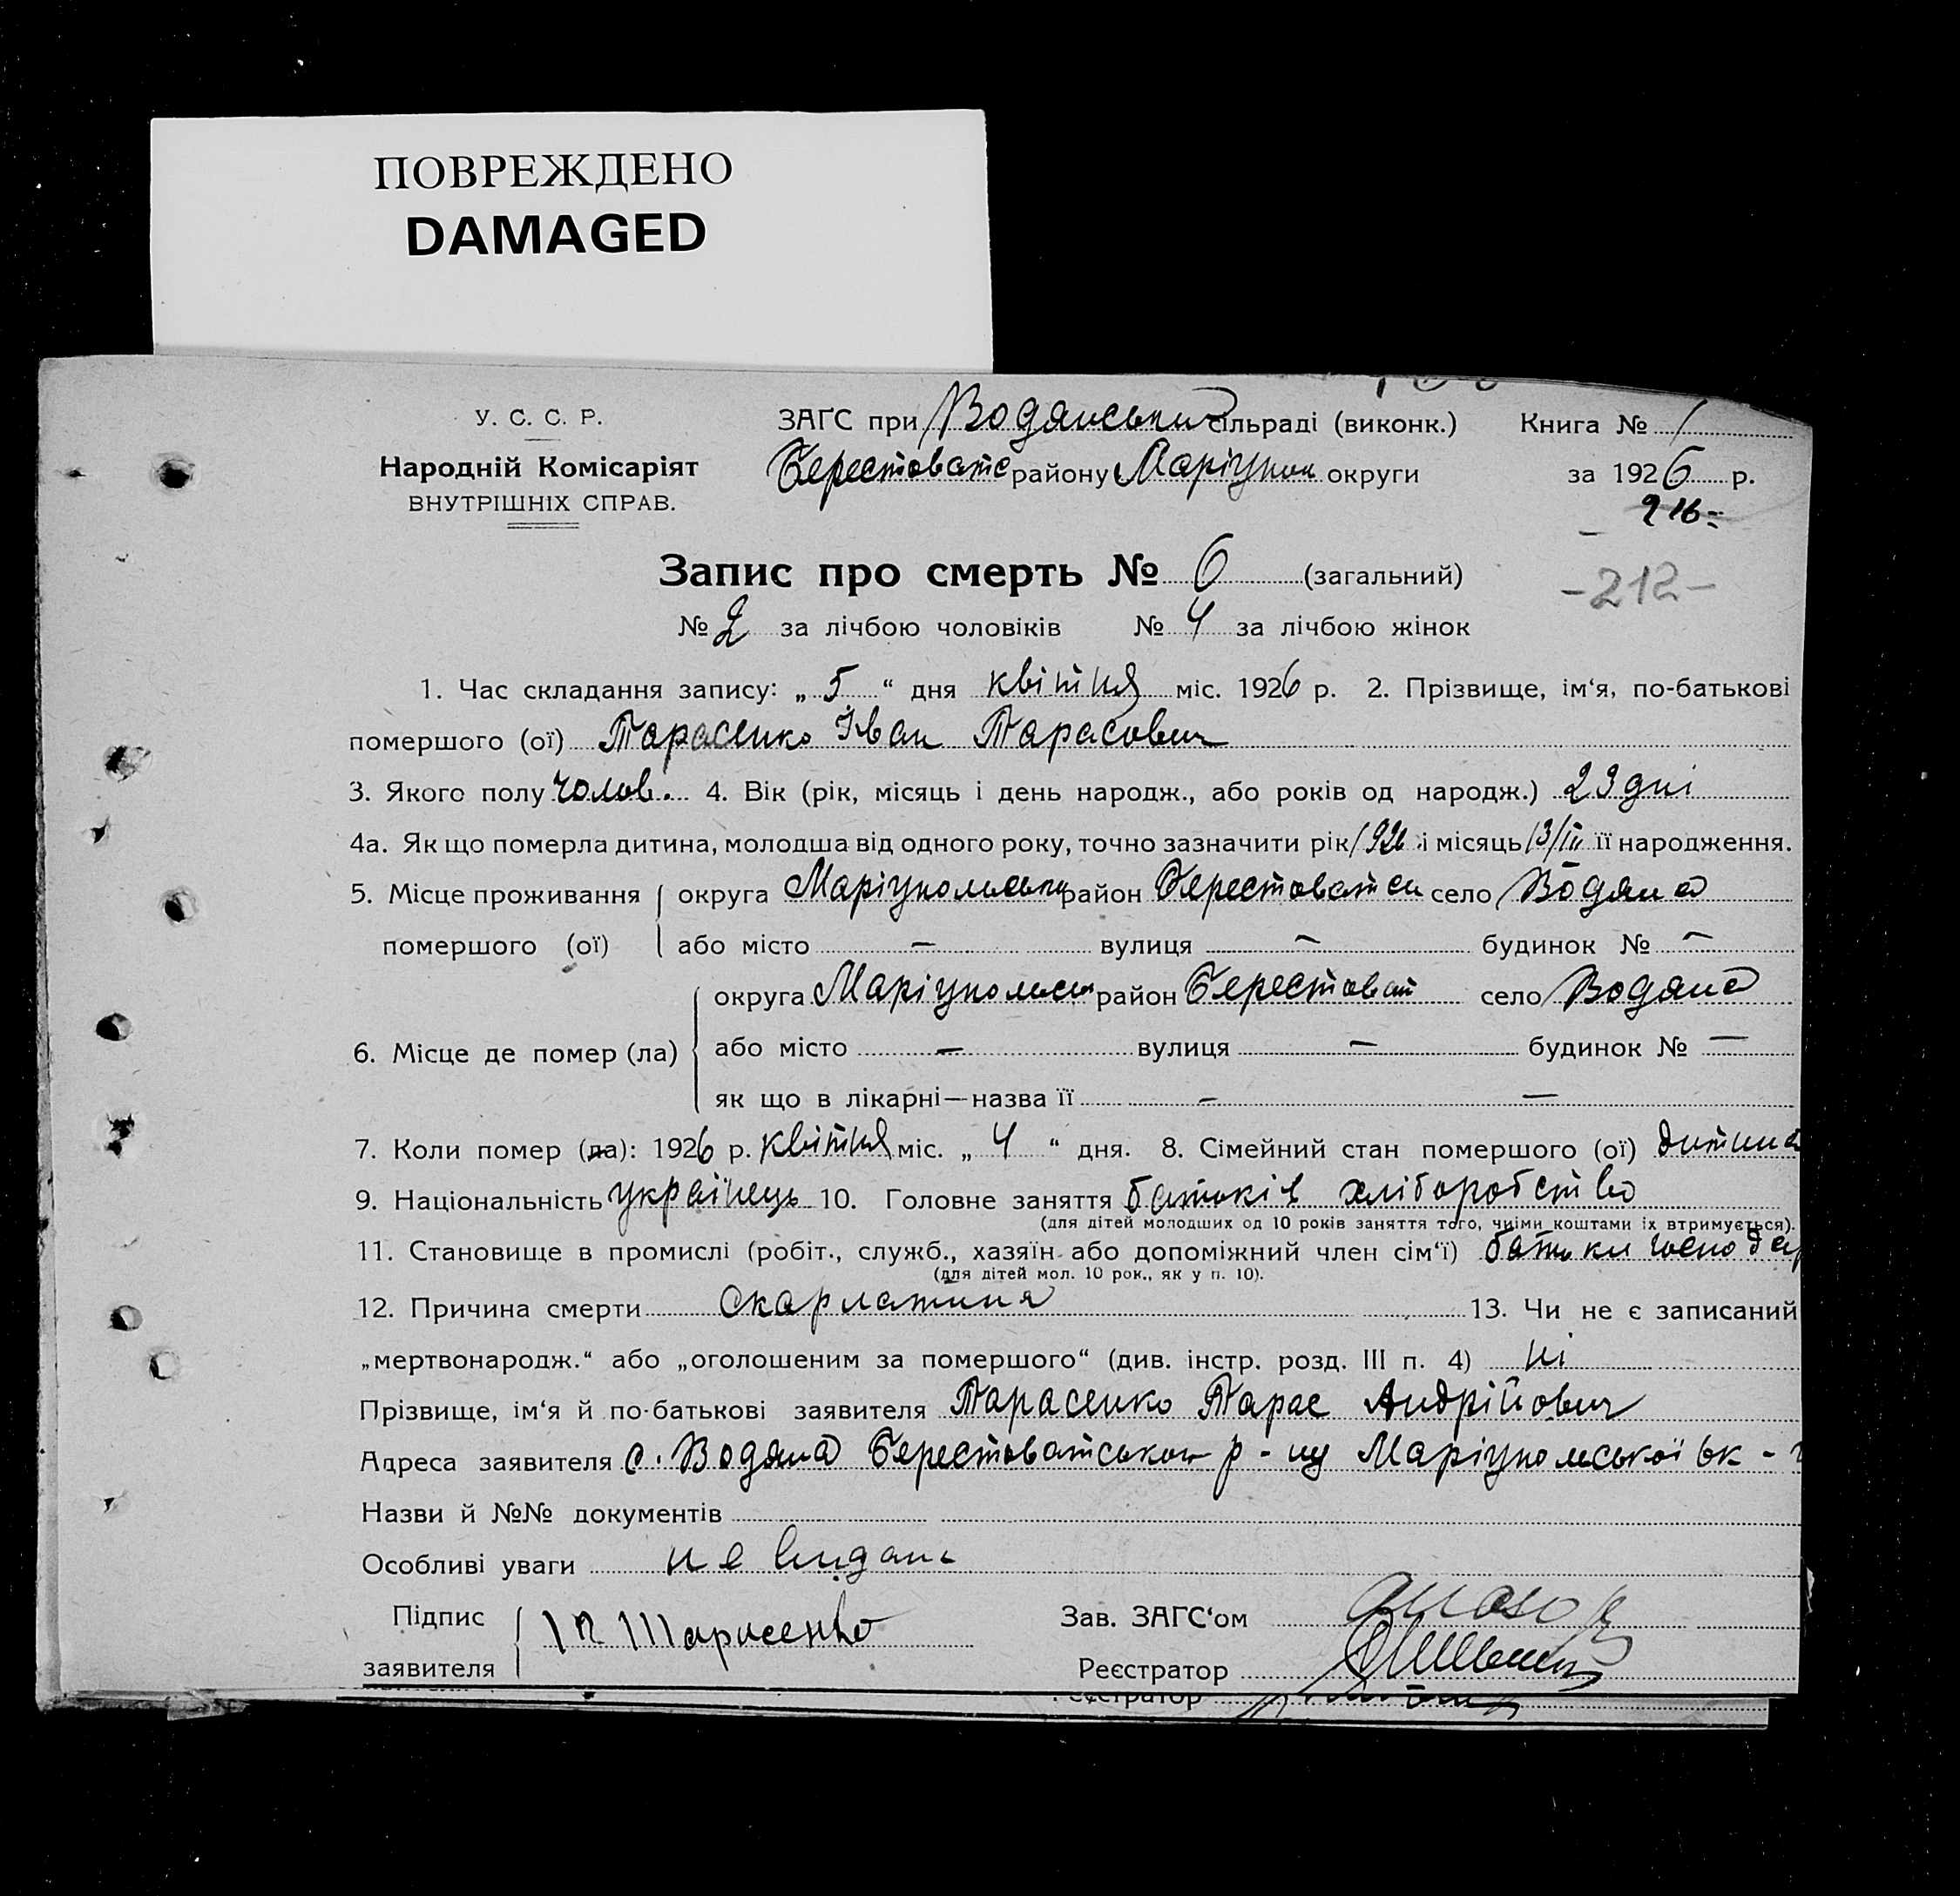 ПОВРЕЖДЕНО
DAMAGED
У. С. С. Р.
Народній Комісаріят
ВНУТРІШНІХ СПРАВ.
ЗАГС при Водянський сільраді (виконк.) Книга № 1
Берестоватс району Маріупол округи за 1926 р.
216
Запис про смерть № 6 (загальний)
-212-
№ 2 за лічбою чоловіків № 4 за лічбою жінок
1. Час складання запису: „ 5 “ дня квітня міс. 1926 р. 2. Прізвище, ім‘я, по-батькові
помершого (ої) Тарасенко Іван Тарасович
3. Якого полу чолов. 4. Вік (рік, місяць і день народж., або років од народж.) 23 дні
4а. Як що померла дитина, молодша від одного року, точно зазначити рік 1926 і місяць 13/III її народження.
5. Місце проживання округа Маріупольськи район Берестоватськ село Водяна
помершого (ої) або місто — вулиця — будинок № —
округа Маріупольськ район Берестоват село Водяна
6. Місце де помер (ла) або місто — вулиця — будинок № —
як що в лікарні—назва її — —
7. Коли помер (ла): 1926 р. квітня міс. „ 4 “ дня. 8. Сімейний стан помершого (ої) дитина
9. Національність українець 10. Головне заняття батьків хліборобство
(для дітей молодших од 10 років заняття того, чиїми коштами їх втримується).
11. Становище в промислі (робіт., служб., хазяїн або допоміжний член сім‘ї) батьки господар
(для дітей мол. 10 рок., як у п. 10).
12. Причина смерти скарлатина 13. Чи не є записаний
„мертвонародж.“ або „оголошеним за помершого“ (див. інстр. розд. III п. 4) ні
Прізвище, ім‘я й по-батькові заявителя Тарасенко Тарас Андрійович
Адреса заявителя с. Водяна Берестоватського р-ну Маріупольської ок-
Назви й №№ документів
Особливі уваги не видані
Підпис Тарасенко Зав. ЗАГС‘ом
заявителя Реєстратор
Реєстратор